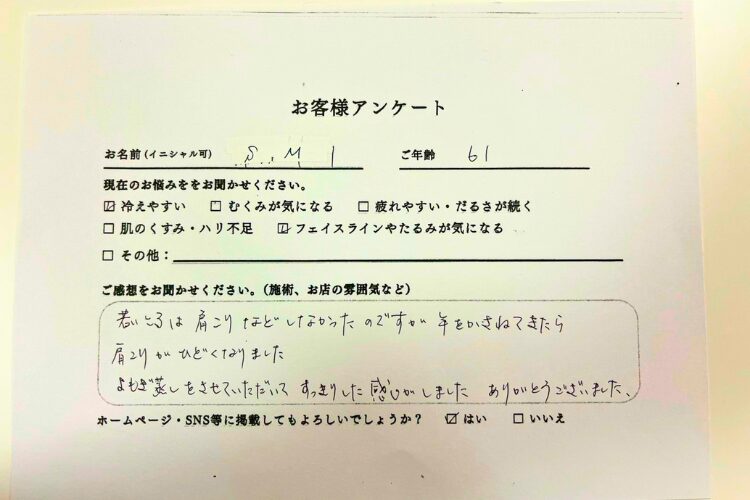 お客様アンケート
お名前(イニシャル可) S.M ご年齢 61
現在のお悩みををお聞かせください。
☑ 冷えやすい □ むくみが気になる □ 疲れやすい・だるさが続く
□ 肌のくすみ・ハリ不足 ☑ フェイスラインやたるみが気になる
□ その他：
ご感想をお聞かせください。（施術、お店の雰囲気など）
若いころは 肩こり などしなかったのですが 年をかさねてきたら
肩こりが ひどくなりました
よもぎ蒸しをさせていただいて すっきりした感じがしました ありがとうございました、
ホームページ・SNS等に掲載してもよろしいでしょうか？ ☑ はい □ いいえ